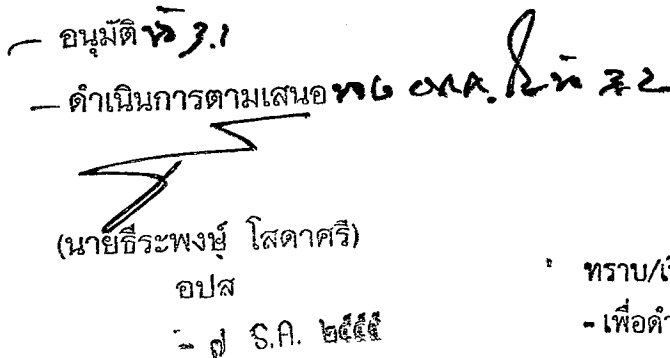 — อนุมัติ ข้อ 3.1
— ดำเนินการตามเสนอของ ในข้อ 3.2
(นายธีระพงษ์ โสดาศรี)
อปส
ธ.ค. ๒๕๕๕
ทราบ/เ
- เพื่อดำ